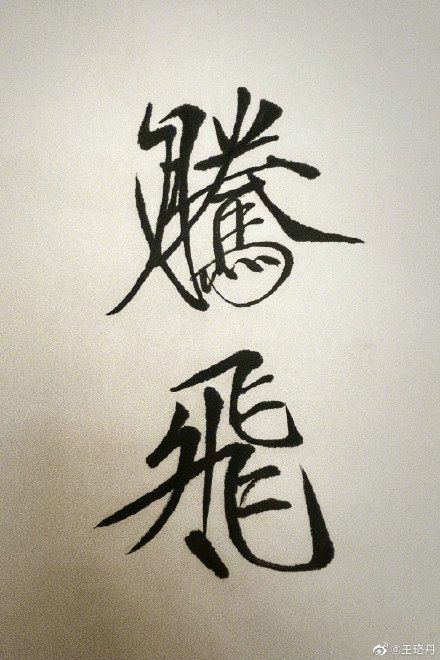 騰
飛
@王珞丹